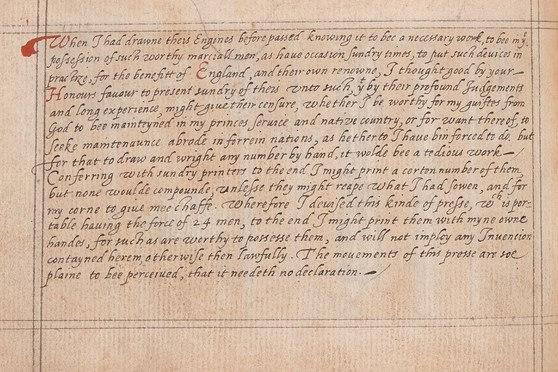 When I had drawne theis Engines before passed knowing it to bee a necessary work, to bee in yͤ
possession of such worthy marciall men, as have occasion sundry times, to put such devices in
practize, for the benefitt of England, and their own renowne, I thought good by your
Honours favour to present sundry of theis vnto such, yͭ by their profound Judgements
and long experience, might give their censure, whether I be worthy for my guiftes from
God to bee maintyned in my princes service and native country, or for want thereof, to
seeke maintenaunce abrode in forrein nations, as hetherto I have bin forced to do, but
for that to draw and wright any number by hand, it wolde bee a tedious work
Conferring with sundry printers to the end I might print a certon number of them
but none woulde compounde, unlesse they might reape what I had sowen, and for
my corne to give mee chaffe. Wherefore I devised this kinde of presse, wᶜʰ is por-
table having the force of 24 men, to the end I might print them with myne owne
handes, for such as are worthy to possesse them, and will not imploy any Invention
contayned herein, otherwise then lawfully. The movements of this presse are soe
plaine to bee perceived, that it needeth no declaration.